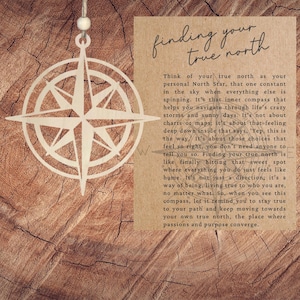 finding your
true north
Think of your true north, as your
personal North Star, that one constant
in the sky when everything else is
spinging. It's that inner compass that
helps you navigate through life's crazy
storms and sunny days. It's not about
charts or maps it's about that feeling
deep down inside that says, "Yep, this is
the way." It's about those choices that
feel so right, you don't need anyone to
tell you so. Finding your true north is
like finally hitting that sweet spot
where everything you do just feels like
home. It's not just a direction, it's a
way of being, living true to who you are,
no matter what. So, when you see this
compass, let it remind you to stay true
to your path and keep moving towards
your own true north, the place where
passions and purpose converge.